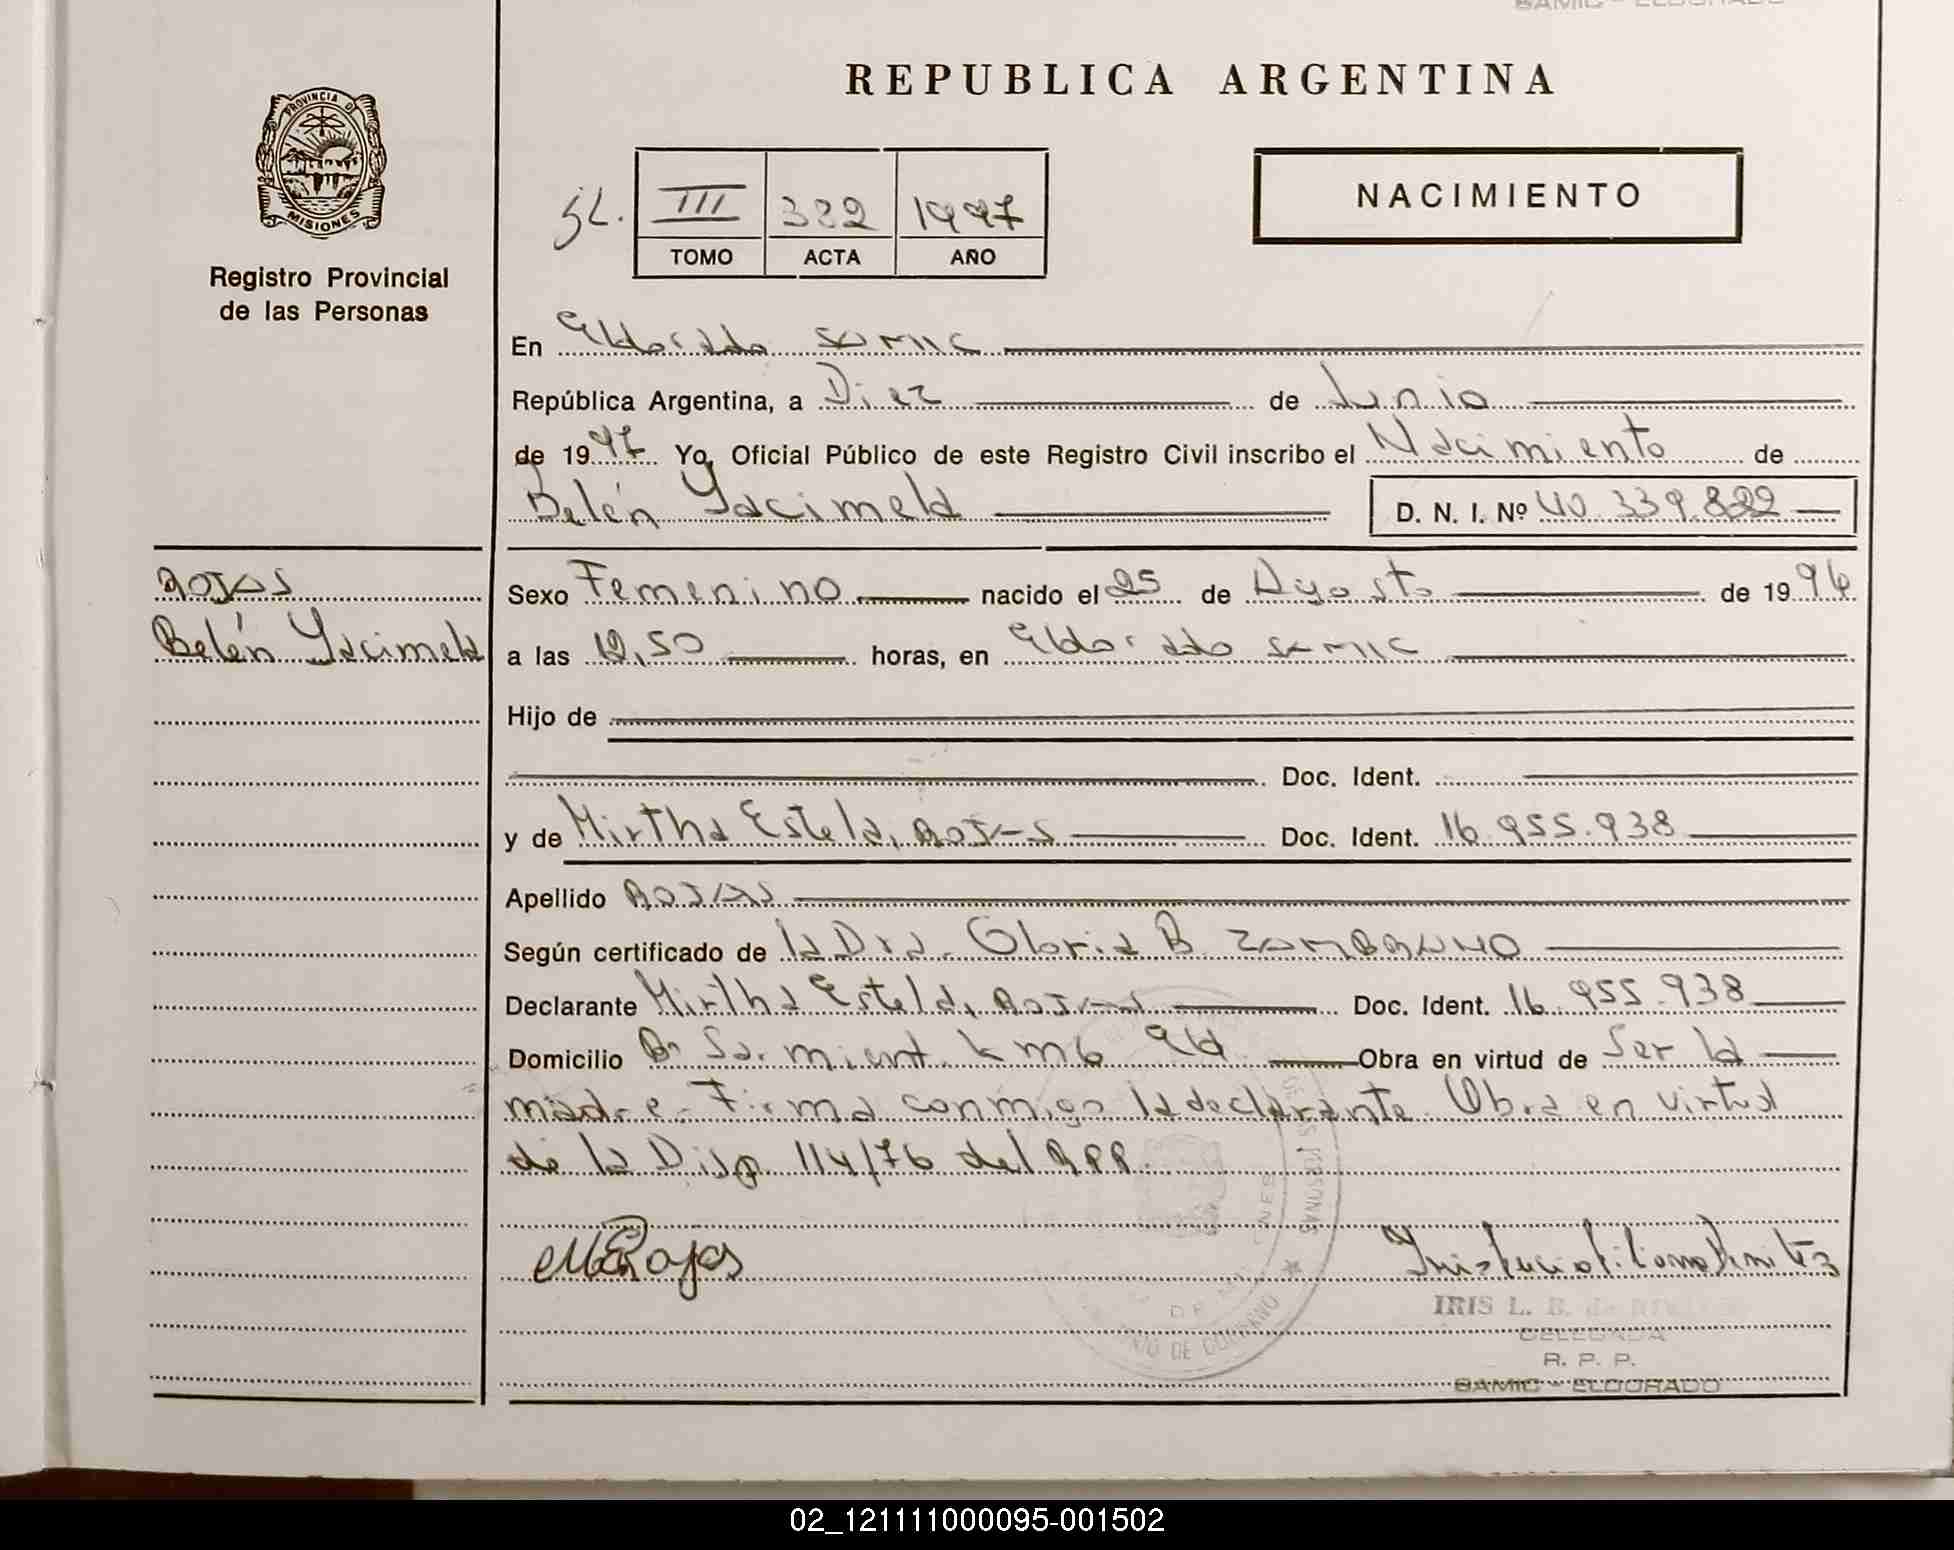 SAMIC - ELDORADO
REPUBLICA ARGENTINA
PROVINCIA DE
MISIONES
Registro Provincial
de las Personas
III 332 1997
TOMO ACTA AÑO
NACIMIENTO
En Eldorado SAMIC
República Argentina, a Diez de Junio
de 1997 Yo, Oficial Público de este Registro Civil inscribo el Nacimiento de
Belén Yacimela D. N. I. Nº 40.339.822
ROJAS
Belén Yacimela
Sexo Femenino nacido el 25 de Agosto de 1996
a las 12,50 horas, en Eldorado SAMIC
Hijo de
Doc. Ident.
y de Mirtha Estela, ROJAS Doc. Ident. 16.955.938
Apellido ROJAS
Según certificado de la Dra. Gloria B. ZAMBRANO
Declarante Mirtha Estela, ROJAS Doc. Ident. 16.955.938
Domicilio Bº Sarmient. km 6 Eld. Obra en virtud de Ser la
madre. Firma conmigo la declarante. Obra en virtud
de la Disp 114/76 del RPP.
MERojas
IRIS L. B. de
DELEGADA
R. P. P.
SAMIC - ELDORADO
02_121111000095-001502